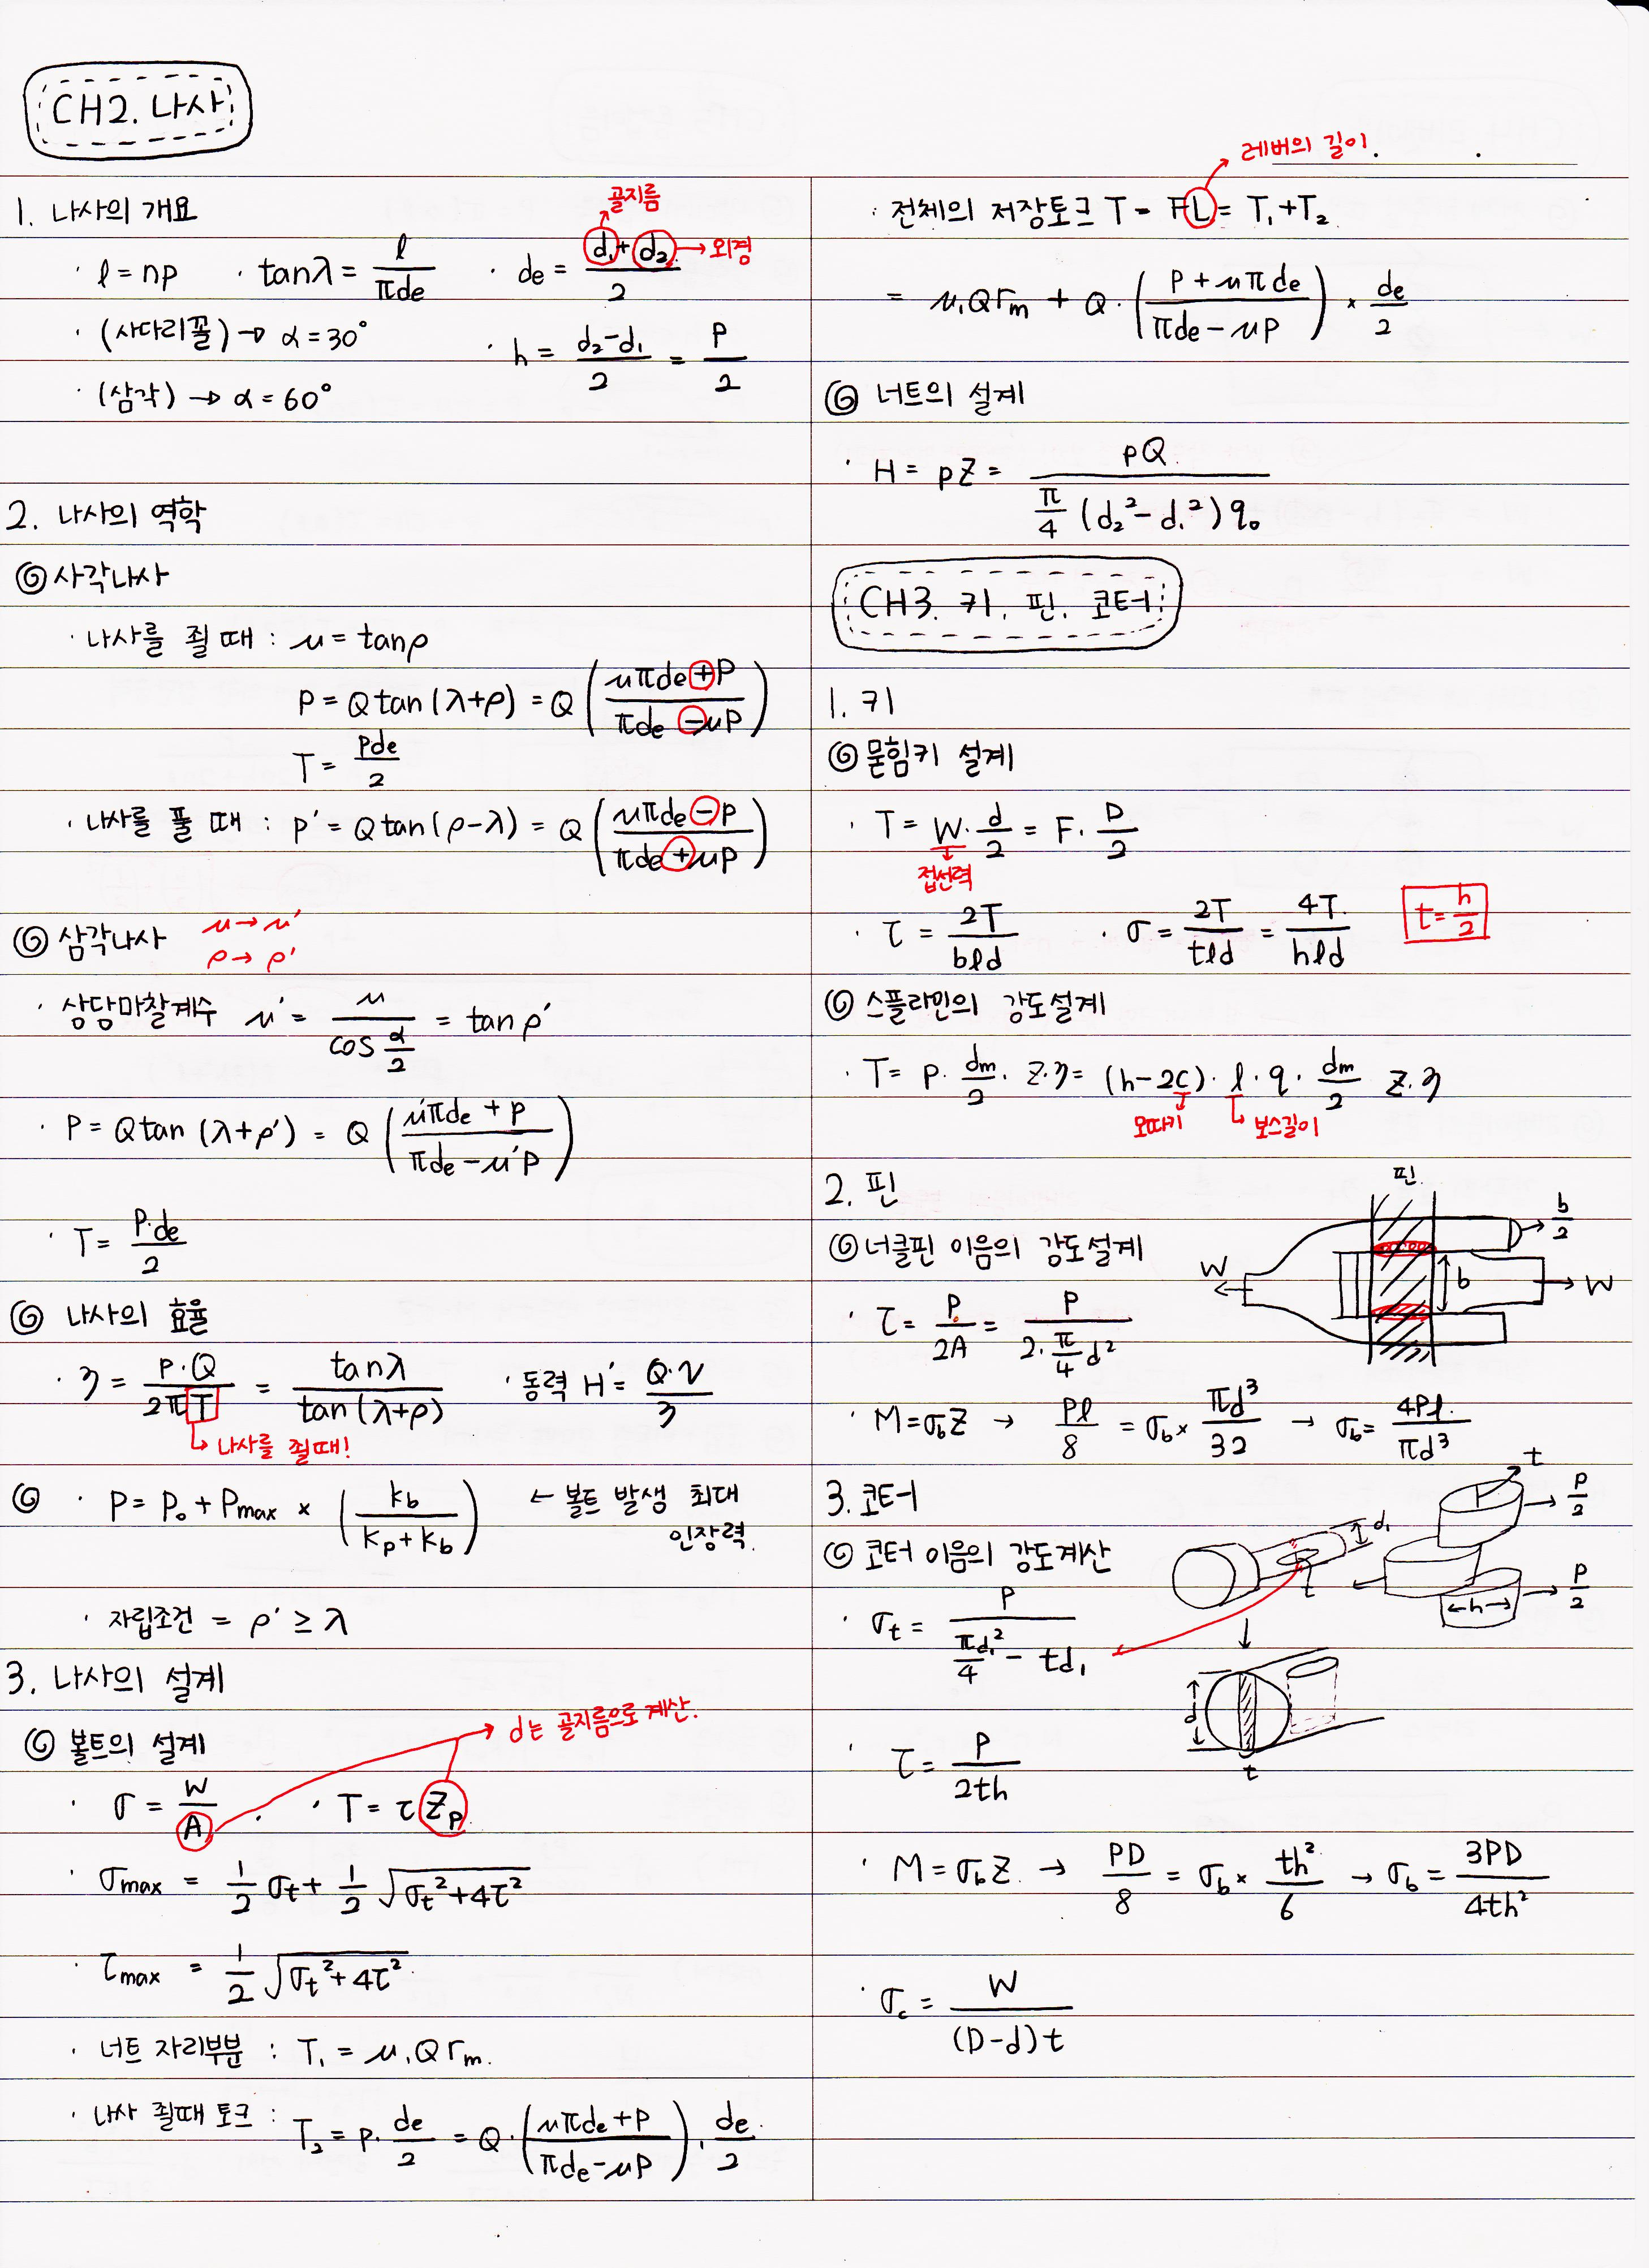 CH2. 나사
1. 나사의 개요
골지름
· l = np · tanλ = l / πde · de = (d₁ + d₂) / 2 → 외경
· (사다리꼴) → α = 30°
· h = (d₂ - d₁) / 2 = P / 2
· (삼각) → α = 60°
2. 나사의 역학
◎ 사각나사
· 나사를 죌 때 : μ = tanρ
P = Q tan (λ+ρ) = Q ( (μπde + P) / (πde - μP) )
T = Pde / 2
· 나사를 풀 때 : P' = Q tan (ρ-λ) = Q ( (μπde - P) / (πde + μP) )
◎ 삼각나사 μ → μ'
ρ → ρ'
· 상당마찰계수 μ' = μ / cos(α/2) = tan ρ'
· P = Q tan (λ+ρ') = Q ( (μ'πde + P) / (πde - μ'P) )
· T = P·de / 2
◎ 나사의 효율
· η = P·Q / 2πT = tanλ / tan(λ+ρ) · 동력 H' = Q·v / η
↳ 나사를 죌때!
◎ · P = P₀ + Pmax × ( kb / (kp + kb) ) ← 볼트 발생 최대
인장력.
· 자립조건 = ρ' ≥ λ
3. 나사의 설계
→ d는 골지름으로 계산.
◎ 볼트의 설계
· σ = W / A . · T = τ Zp
· σmax = 1/2 σt + 1/2 √(σt² + 4τ²)
· τmax = 1/2 √(σt² + 4τ²)
· 너트 자리부분 : T₁ = μ₁Q rm.
· 나사 죌때 토크 : T₂ = P· de/2 = Q· ( (μπde + P) / (πde - μP) ) · de/2
레버의 길이.
· 전체의 저장토크 T = FL = T₁ + T₂
= μ₁Q rm + Q· ( (P + μπde) / (πde - μP) ) × de/2
◎ 너트의 설계
· H = pZ = pQ / (π/4 (d₂² - d₁²) q₀)
CH3. 키, 핀, 코터
1. 키
◎ 묻힘키 설계
· T = W· d/2 = F· D/2
접선력
· τ = 2T / bld · σ = 2T / tld = 4T / hld t = h/2
◎ 스플라인의 강도설계
· T = P· dm/2 · Z·η = (h-2c)· l·q· dm/2 Z·η
모따기 ↳ 보스길이
2. 핀
핀
b/2
◎ 너클핀 이음의 강도설계
W b W
· τ = P / 2A = P / (2·π/4 d²)
· M = σbZ → Pl / 8 = σb × πd³ / 32 → σb = 4Pl / πd³
3. 코터
t P/2
d₁
◎ 코터 이음의 강도계산
t P/2
h
· σt = P / (πd₁²/4 - td₁)
d
t
· τ = P / 2th
· M = σbZ → PD / 8 = σb × th² / 6 → σb = 3PD / 4th²
· σc = W / (D-d)t